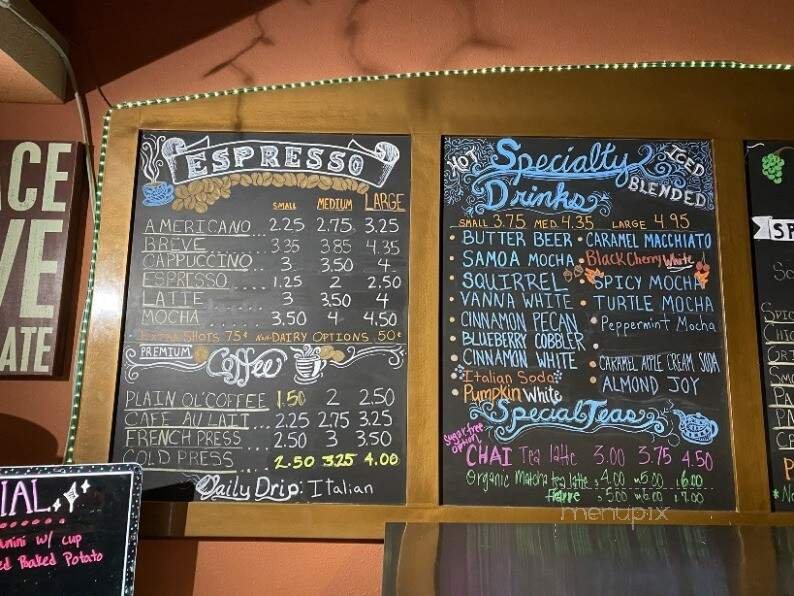 ACE
VE
ATE
IAL
anini w/ cup
ed Baked Potato
ESPRESSO
SMALL MEDIUM LARGE
AMERICANO 2.25 2.75 3.25
BREVE 3.35 3.85 4.35
CAPPUCCINO 3 3.50 4
ESPRESSO 1.25 2 2.50
LATTE 3 3.50 4
MOCHA 3.50 4 4.50
EXTRA SHOTS 75¢ Non DAIRY OPTIONS .50¢
PREMIUM Coffee
PLAIN OL' COFFEE 1.50 2 2.50
CAFE AU LAIT 2.25 2.75 3.25
FRENCH PRESS 2.50 3 3.50
COLD PRESS 2.50 3.25 4.00
Daily Drip: Italian
HOT Specialty Drinks ICED BLENDED
SMALL 3.75 MED 4.35 LARGE 4.95
BUTTER BEER
SAMOA MOCHA
SQUIRREL
VANNA WHITE
CINNAMON PECAN
BLUEBERRY COBBLER
CINNAMON WHITE
Italian Soda
Pumpkin White
CARAMEL MACCHIATO
Black Cherry White
SPICY MOCHA
TURTLE MOCHA
Peppermint Mocha
CARAMEL APPLE CREAM SODA
ALMOND JOY
Special Teas
Sugar free option
CHAI Tea latte 3.00 3.75 4.50
Organic Matcha tea latte s 4.00 m 5.00 L 6.00
s 5.00 m 6.00 L 7.00
SP
menupix